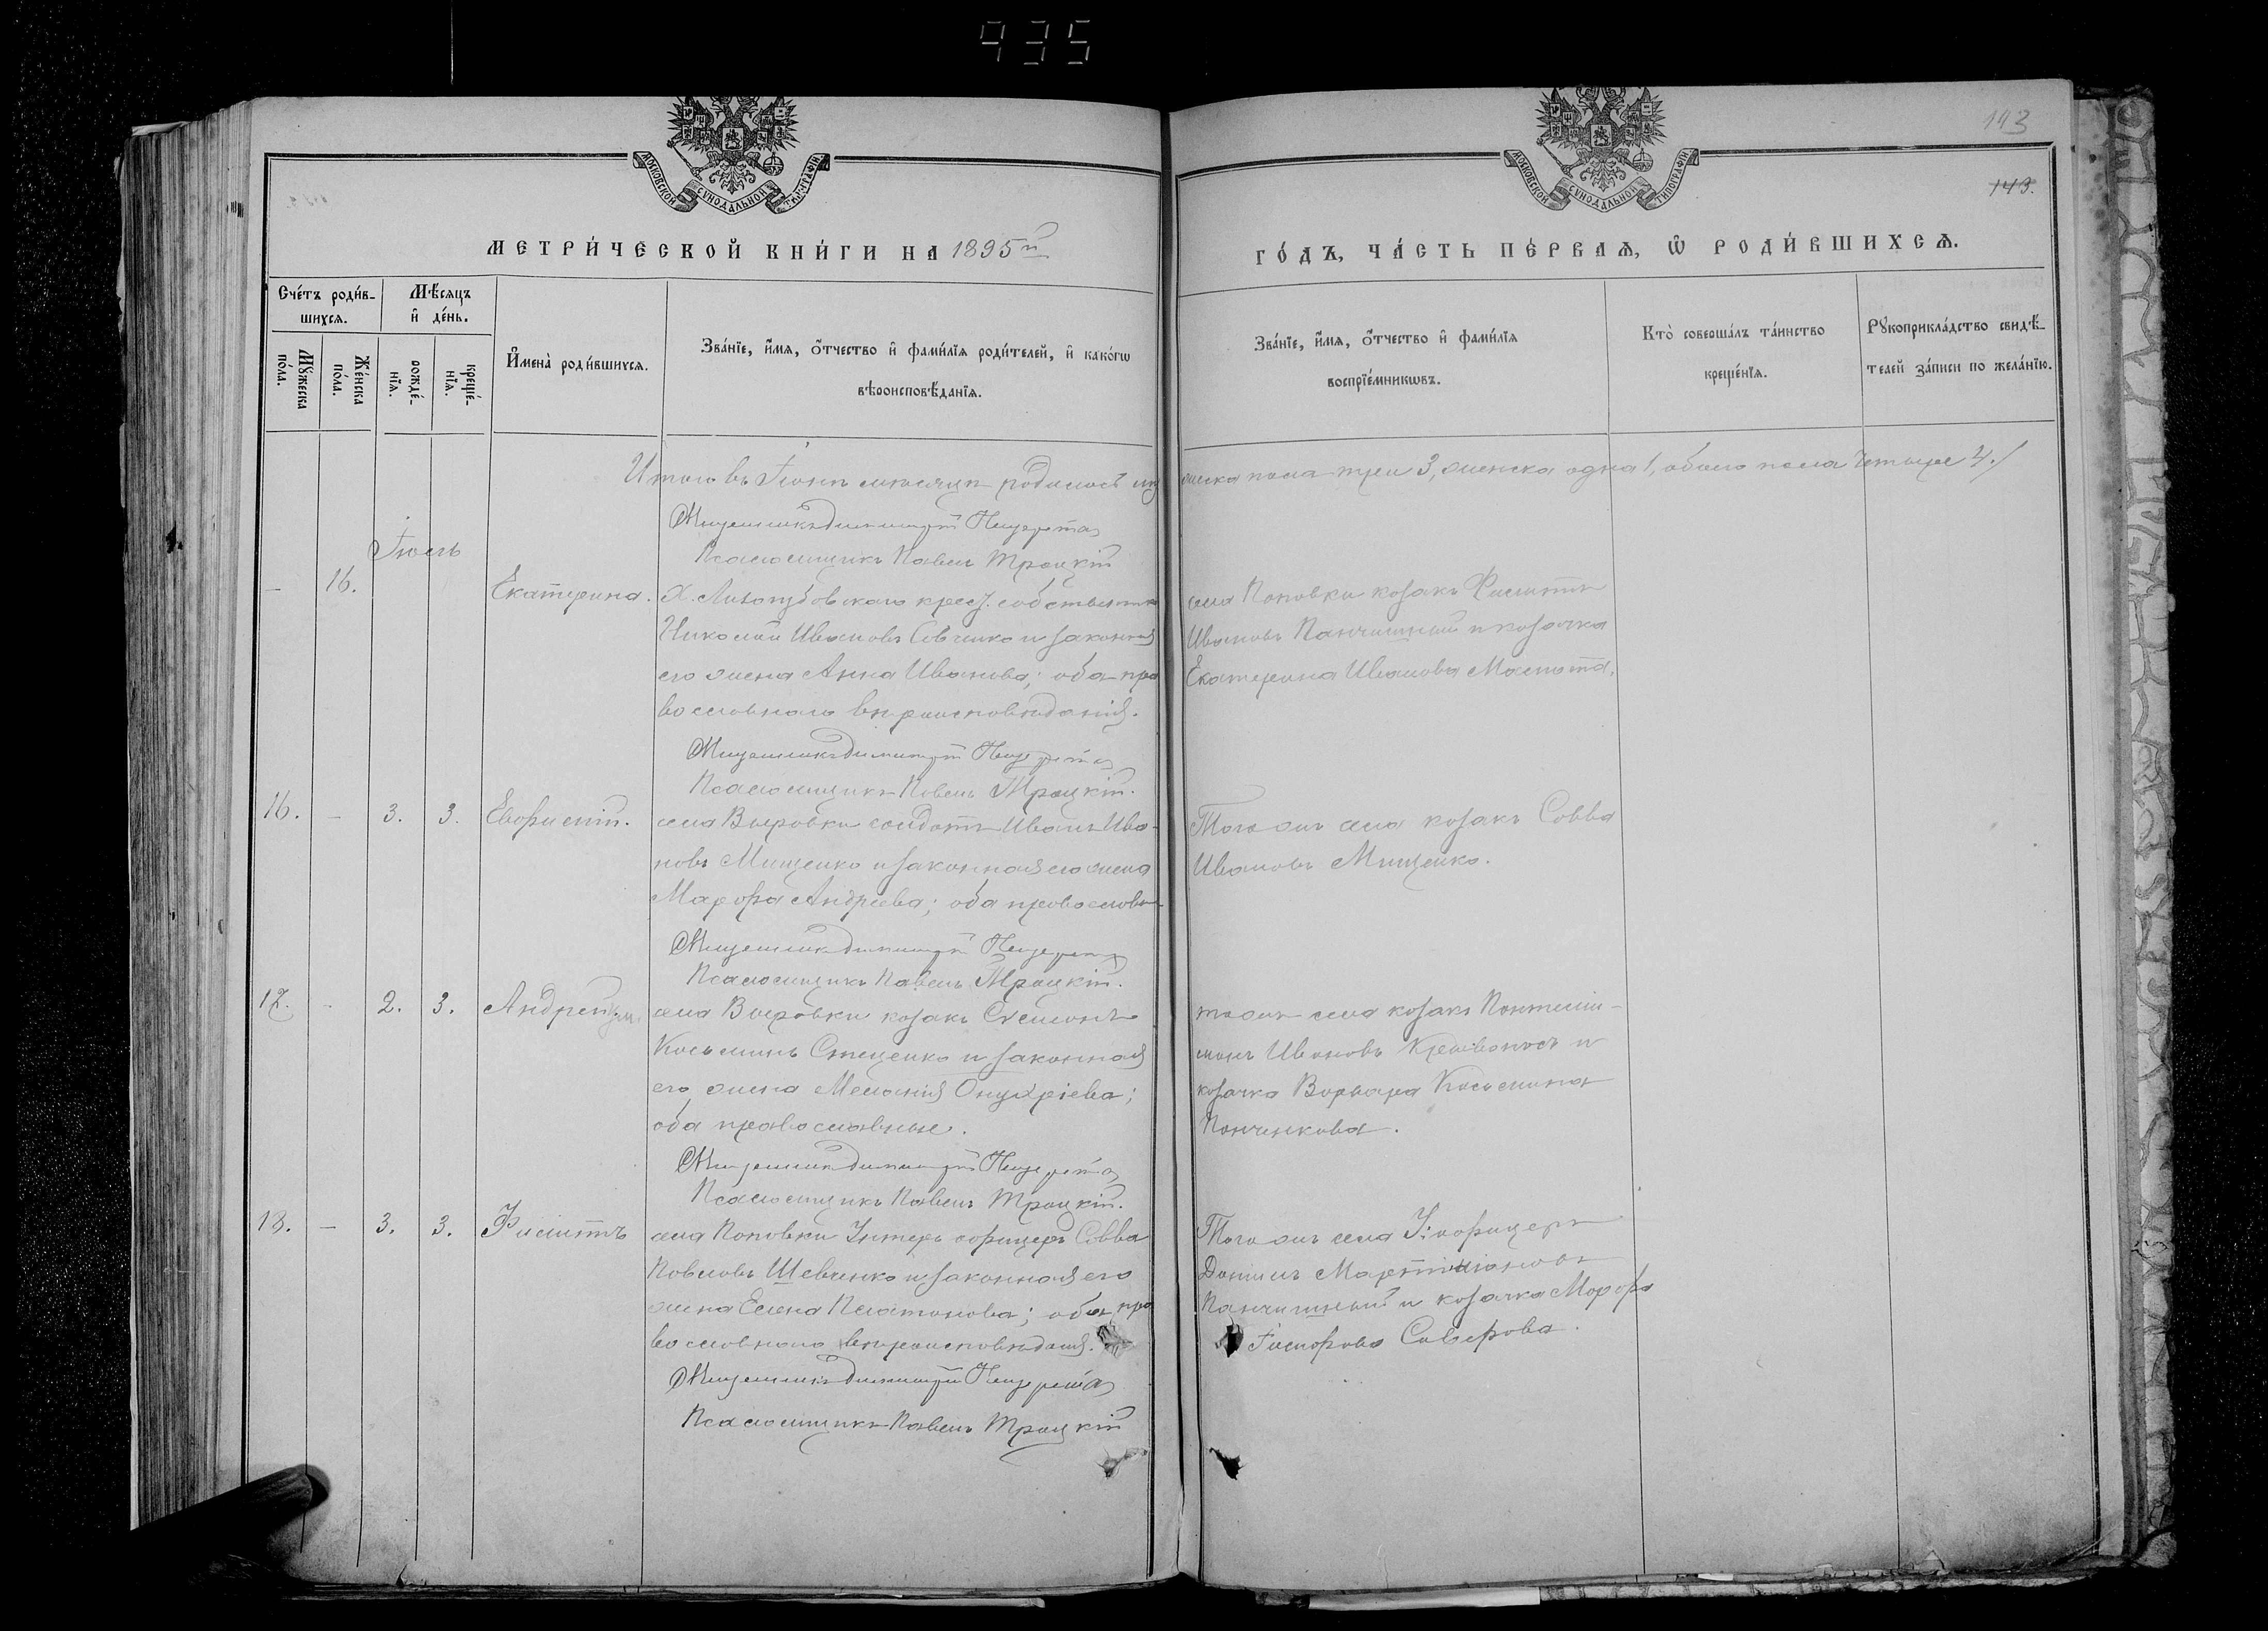 935
МОСКОВСКОЙ СѴНОДАЛЬНОЙ ТИПОГРАФІИ
МОСКОВСКОЙ СѴНОДАЛЬНОЙ ТИПОГРАФІИ
143
143.
МЕТРИ́ЧЕСКОЙ КНИ́ГИ НА 1895й
ГО́ДЪ, ЧА́СТЬ ПЕ́РВАЯ, Ѡ҆ РОДИ́ВШИХСѦ.
Сче́тъ роди́вшихсѧ.
Мѣ́сяцъ и҆ де́нь.
Мꙋ́жеска по́ла.
Же́нска по́ла.
рожде́нїѧ.
креще́нїѧ.
И҆мена̀ роди́вшихсѧ.
Зва́нїе, и҆́мѧ, ѻ҆́тчество и҆ фами́лїѧ роди́телей, и҆ како́гѡ
вѣроисповѣ́данїѧ.
Зва́нїе, и҆́мѧ, ѻ҆́тчество и҆ фами́лїѧ
воспрїе́мникѡвъ.
Кто̀ соверша́лъ та́инство
креще́нїѧ.
Рꙋкоприкла́дство свидѣ́-
телей за́писи по жела́нїю.
Итого въ Іюнѣ мѣсяцѣ родилось муж
жеска пола три 3, женска одна 1, обоего пола четыре 4./
Священникъ Димитрій
Псаломщикъ Павелъ Троцкій
Іюль
– 16. Екатерина. Х. Лизогубовскаго крест. собственникъ
Николай Ивановъ Савченко и законная
его жена Анна Иванова; оба пра
вославнаго вѣроисповѣданія.
села Поповки козакъ Филиппъ
Ивановъ Панчишный и козачка
Екатерина Иванова
Священникъ Димитрій
Псаломщикъ Павелъ Троцкій.
16. – 3. 3. села Выровки солдатъ Иванъ Ива-
новъ Мищенко и законная его жена
Марфа Андреева; оба православн
Того же села козакъ Савва
Ивановъ Мищенко.
Священникъ Димитрій
Псаломщикъ Павелъ Троцкій.
17. – 2. 3. Андрей села Выровки козакъ Симеонъ
Косьминъ Стеценко и законная
его жена Меланія Онуфріева;
оба православные.
того же села козакъ Пантелей-
монъ Ивановъ Кривоносъ и
козачка Варвара Косьмина
Панченкова.
Священникъ Димитрій
Псаломщикъ Павелъ Троцкій.
18. – 3. 3. Филиппъ села Поповки Унтеръ офицеръ Савва
Павловъ Шевченко и законная его
жена Елена Платонова; оба пра
вославнаго вѣроисповѣданія.
Того же села У: офицеръ
Даниилъ Мартиніановъ
Панчишный и козачка Марфа
Священникъ Димитрій
Псаломщикъ Павелъ Троцкій